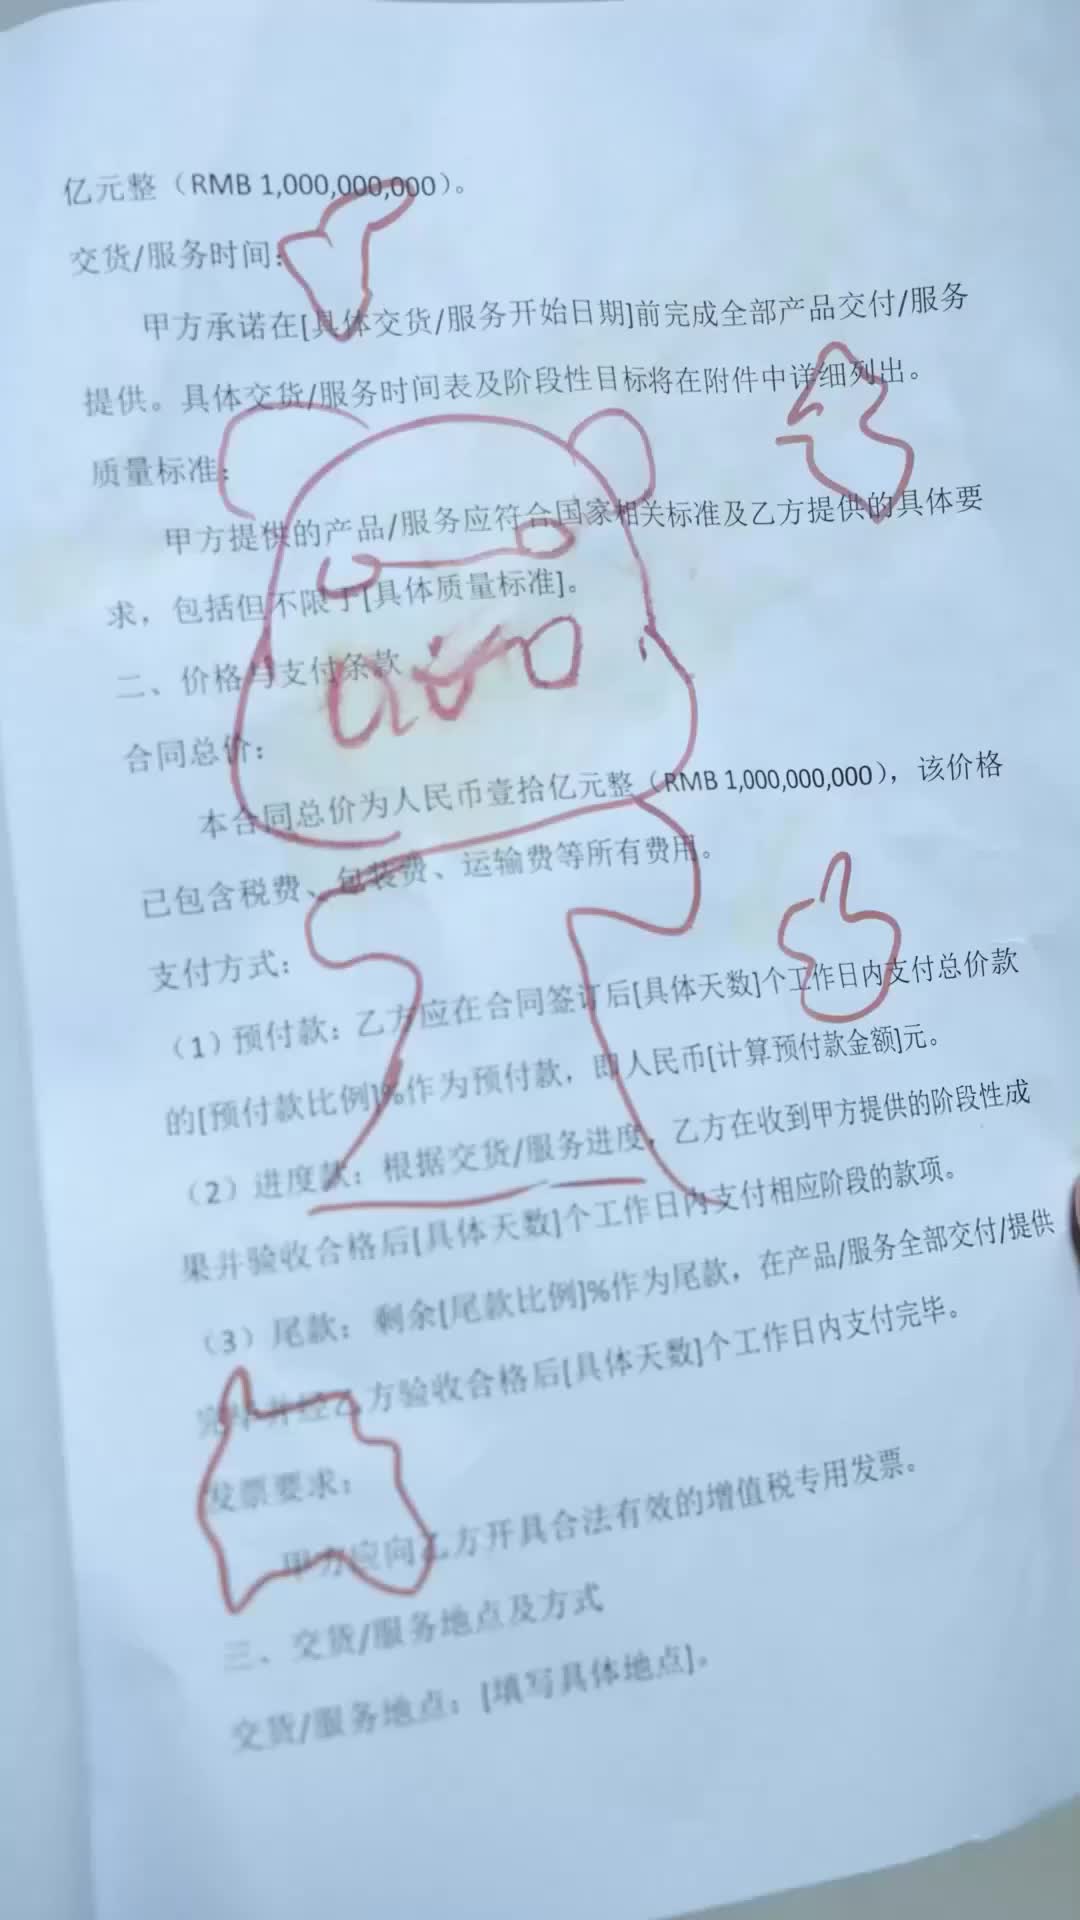 亿元整（RMB 1,000,000,000）。
交货/服务时间：
甲方承诺在[具体交货/服务开始日期]前完成全部产品交付/服务
提供。具体交货/服务时间表及阶段性目标将在附件中详细列出。
质量标准：
甲方提供的产品/服务应符合国家相关标准及乙方提供的具体要
求，包括但不限于[具体质量标准]。
二、价格与支付条款
合同总价：
本合同总价为人民币壹拾亿元整（RMB 1,000,000,000），该价格
已包含税费、包装费、运输费等所有费用。
支付方式：
（1）预付款：乙方应在合同签订后[具体天数]个工作日内支付总价款
的[预付款比例]%作为预付款，即人民币[计算预付款金额]元。
（2）进度款：根据交货/服务进度，乙方在收到甲方提供的阶段性成
果并验收合格后[具体天数]个工作日内支付相应阶段的款项。
（3）尾款：剩余[尾款比例]%作为尾款，在产品/服务全部交付/提供
完毕并经乙方验收合格后[具体天数]个工作日内支付完毕。
发票要求：
甲方应向乙方开具合法有效的增值税专用发票。
三、交货/服务地点及方式
交货/服务地点：[填写具体地点]。